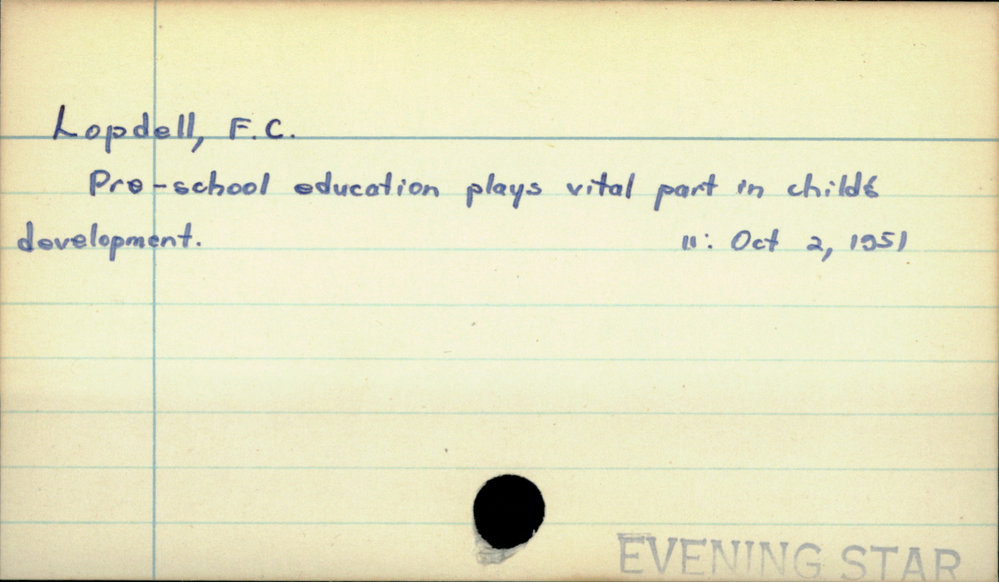 Lopdell, F.C.
Pre-school education plays vital part in child's
development. 11: Oct 2, 1951
EVENING STAR